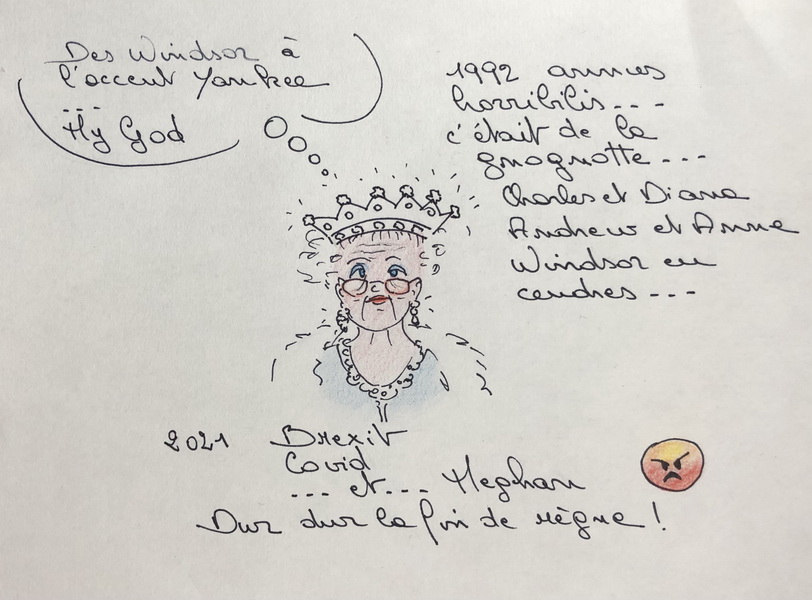 Des Windsor à
l'accent Yankee
...
My God
1992 annus
horribilis...
c'était de la
gnognotte...
Charles et Diana
Andrew et Anne
Windsor en
cendres...
2021 Brexit
Covid
... et... Meghan
Dur dur la fin de règne !